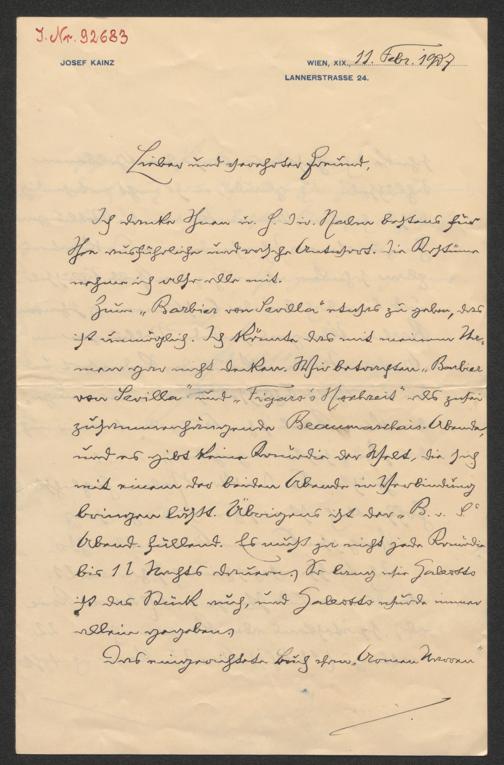 I. Nr. 92683
JOSEF KAINZ
WIEN, XIX., 11. Febr. 1907
LANNERSTRASSE 24.
Lieber und verehrter Freund,
Ich danke Ihnen u. H. Dir. Hahn bestens für
Ihre ausführliche und rasche Antwort. Die Kostüme
nehme ich also alle mit.
Zum „Barbier von Sevilla" etwas zu geben, das
ist unmöglich. Ich könnte das mit meinem Na-
men gar nicht decken. Wir betrachten „Barbier
von Sevilla" und „Figaro's Hochzeit" als zwei
zusammenhängende Beaumarchais-Abende,
und es gibt keine Komödie der Welt, die sich
mit einem der beiden Abende in Verbindung
bringen läßt. Übrigens ist der „B. v. S."
Abend füllend. Es muß ja nicht jede Komödie
bis 11 Nachts dauern. So lang wie Galeotto
ist das Stück auch, und Galeotto wurde immer
allein gegeben.
Das eingerichtete Buch vom „Armen Narren"